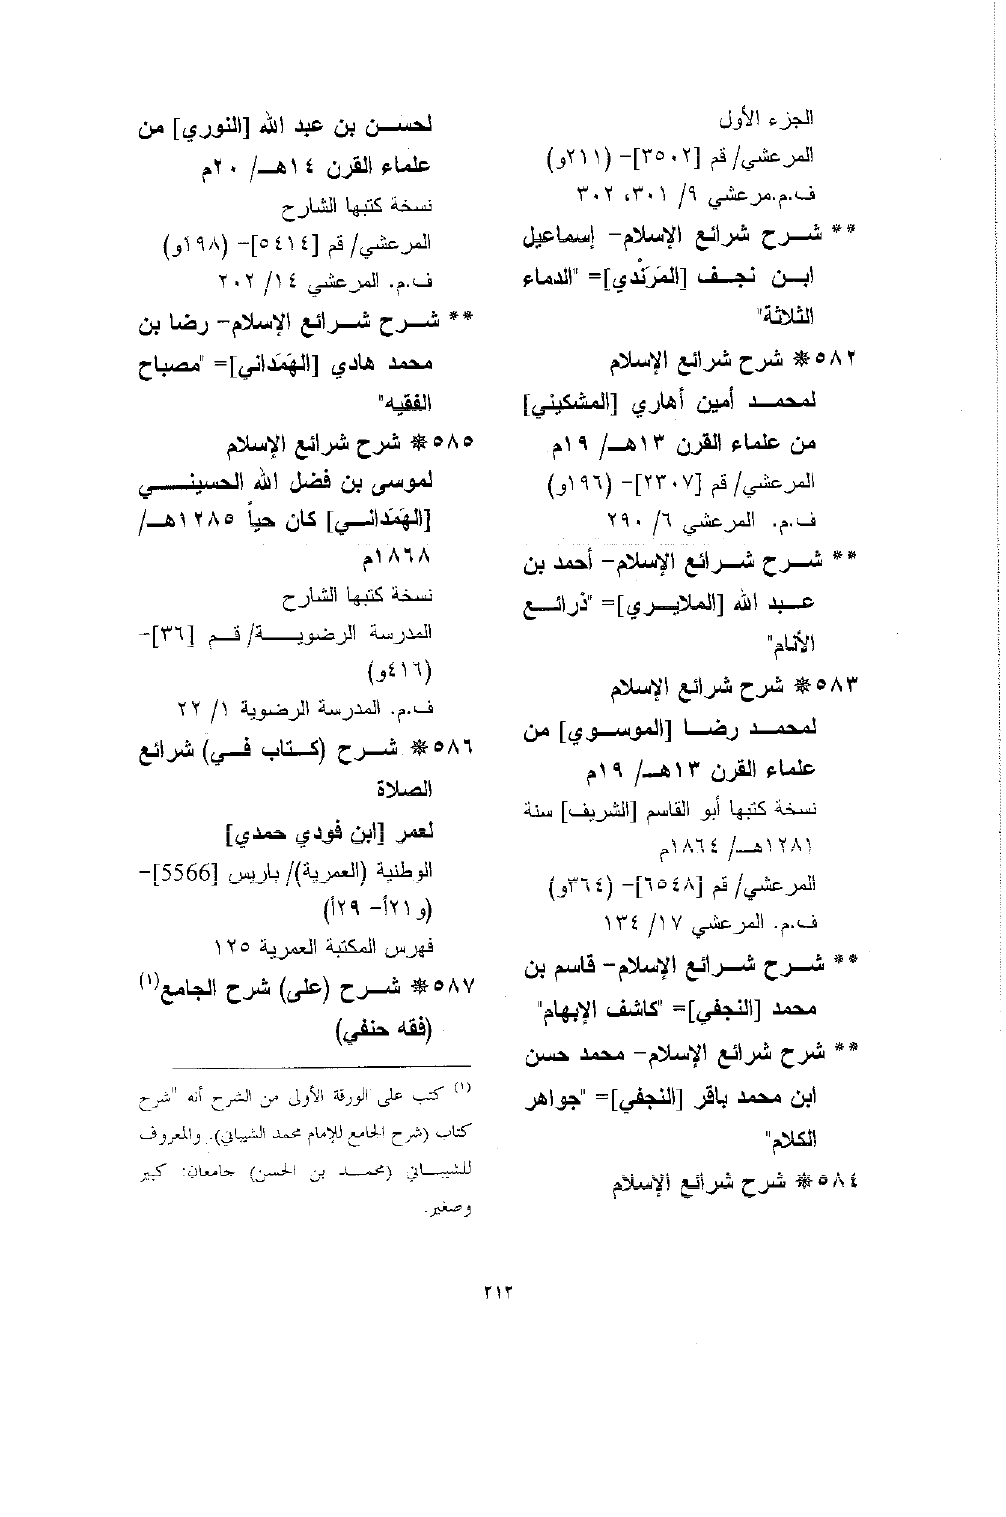 الجزء الأول
المرعشي/ قم [٣٥٠٢]- (٢١١و)
ف.م.مرعشي ٩/ ٣٠١، ٣٠٢
** شرح شرائع الإسلام- إسماعيل
ابن نجف [المَرَنْدي]= "الدماء
الثلاثة"
٥٨٢* شرح شرائع الإسلام
لمحمد أمين أهاري [المشكيني]
من علماء القرن ١٣هـ/ ١٩م
المرعشي/ قم [٢٣٠٧]- (١٩٦و)
ف.م. المرعشي ٦/ ٢٩٠
** شرح شرائع الإسلام- أحمد بن
عبد الله [الملايري]= "ذرائع
الأنام"
٥٨٣* شرح شرائع الإسلام
لمحمد رضا [الموسوي] من
علماء القرن ١٣هـ/ ١٩م
نسخة كتبها أبو القاسم [الشريف] سنة
١٢٨١هـ/ ١٨٦٤م
المرعشي/ قم [٦٥٤٨]- (٣٦٤و)
ف.م. المرعشي ١٧/ ١٣٤
** شرح شرائع الإسلام- قاسم بن
محمد [النجفي]= "كاشف الإبهام"
** شرح شرائع الإسلام- محمد حسن
ابن محمد باقر [النجفي]= "جواهر
الكلام"
٥٨٤* شرح شرائع الإسلام
لحسن بن عبد الله [النوري] من
علماء القرن ١٤هـ/ ٢٠م
نسخة كتبها الشارح
المرعشي/ قم [٥٤١٤]- (١٩٨و)
ف.م. المرعشي ١٤/ ٢٠٢
** شرح شرائع الإسلام- رضا بن
محمد هادي [الهَمَداني]= "مصباح
الفقيه"
٥٨٥* شرح شرائع الإسلام
لموسى بن فضل الله الحسيني
[الهَمَداني] كان حياً ١٢٨٥هـ/
١٨٦٨م
نسخة كتبها الشارح
المدرسة الرضوية/ قم [٣٦]-
(٤١٦و)
ف.م. المدرسة الرضوية ١/ ٢٢
٥٨٦* شرح (كتاب في) شرائع
الصلاة
لعمر [ابن فودي حمدي]
الوطنية (العمرية)/ باريس [5566]-
(و٢١أ- ٢٩أ)
فهرس المكتبة العمرية ١٢٥
٥٨٧* شرح (على) شرح الجامع(١)
(فقه حنفي)
(١) كتب على الورقة الأولى من الشرح أنه "شرح
كتاب (شرح الجامع للإمام محمد الشيباني). والمعروف
للشيباني (محمد بن الحسن) جامعان: كبير
وصغير.
٢١٢